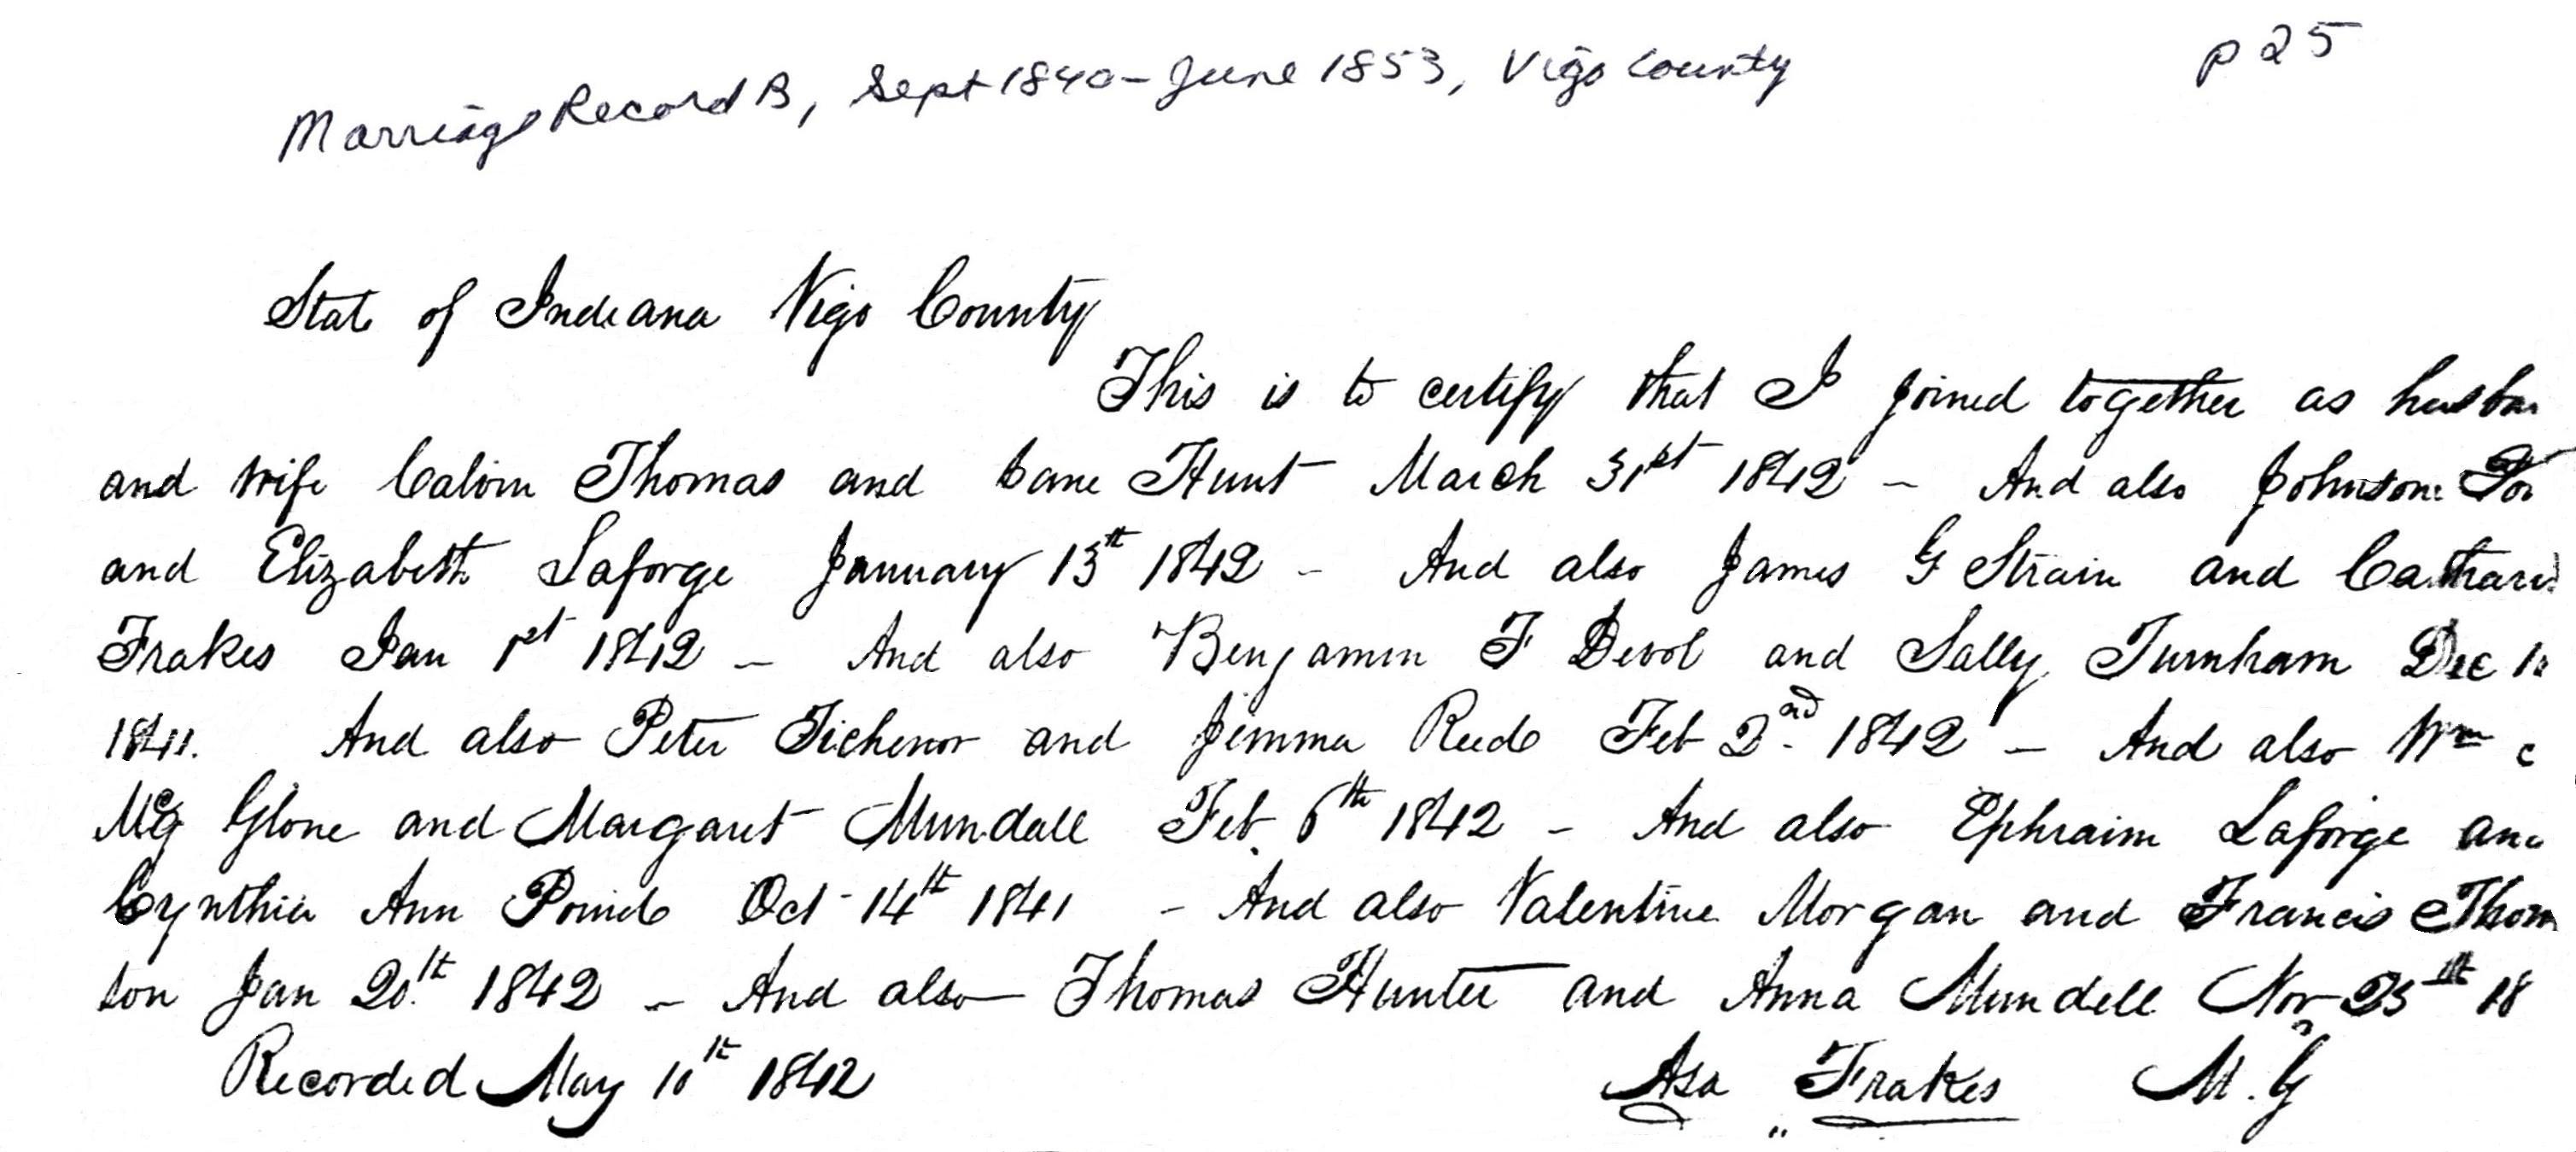 p 25
Marriage Record B, Sept 1840 - June 1853, Vigo County
State of Indiana Vigo County
This is to certify that I joined together as husban
and wife Calvin Thomas and Jane Hunt March 31st 1842 - And also Johnson
and Elizabeth Laforge January 13th 1842 - And also James G Strain and
Frakes Jan 1st 1842 - And also Benjamin F Devol and Sally Turnham Dec
1841. And also Peter Tichenor and Jemma Reede Feb 2nd 1842 - And also Wm
Mc Glone and Margaret Mundall Feb. 6th 1842 - And also Ephraim Laforge and
Cynthia Ann Oct 14th 1841 - And also Valentine Morgan and Francis Thom
ton Jan 20th 1842 - And also Thomas Hunter and Anna Mundell Nov 25th 18
Recorded May 10th 1842 Asa Frakes M.G